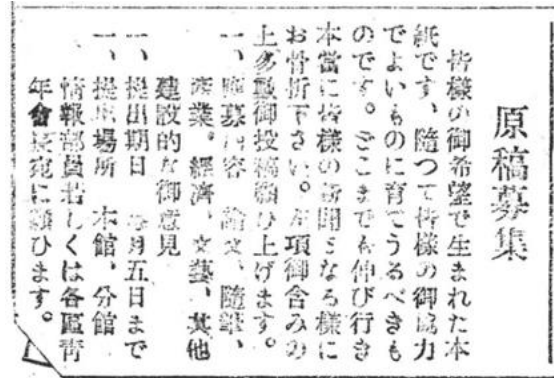 原稿募集
皆樣の御希望で生まれた本
紙です、隨つて皆樣の御協力
でよいものに育てうるべきも
のです。どこまでも伸び行き
本當に皆樣の新聞となる樣に
お骨折下さい。左項御含みの
上多數御投稿願ひ上げます。
一、應募内容 論文、隨筆、
産業、經濟、文藝、其他
建設的な御意見
一、提出期日 每月五日まで
一、提出場所 本館、分館
情報部員若しくは各區靑
年會長宛に願ひます。